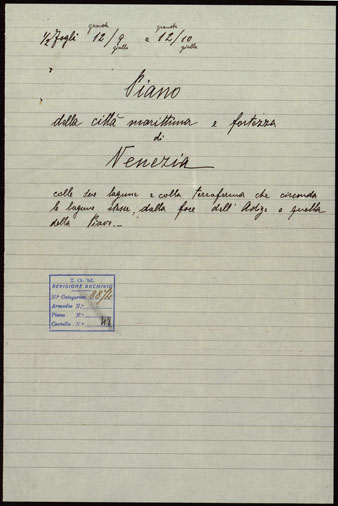 grande grande
1/2 Fogli 12/9 e 12/10
giallo giallo
Piano
della città marittima e fortezza
di
Venezia
colle sue lagune e colla terraferma che circonda
le lagune stesse, dalla foce dell'Adige a quella
della Piave._
I. G. M.
REVISIONE ARCHIVIO
N.º Categorico
Armadio N.º
Piano N.º
Cartella N.º